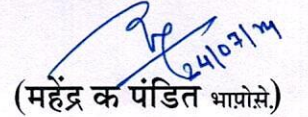 24/07/24
(महेंद्र क पंडित भापोसे.)